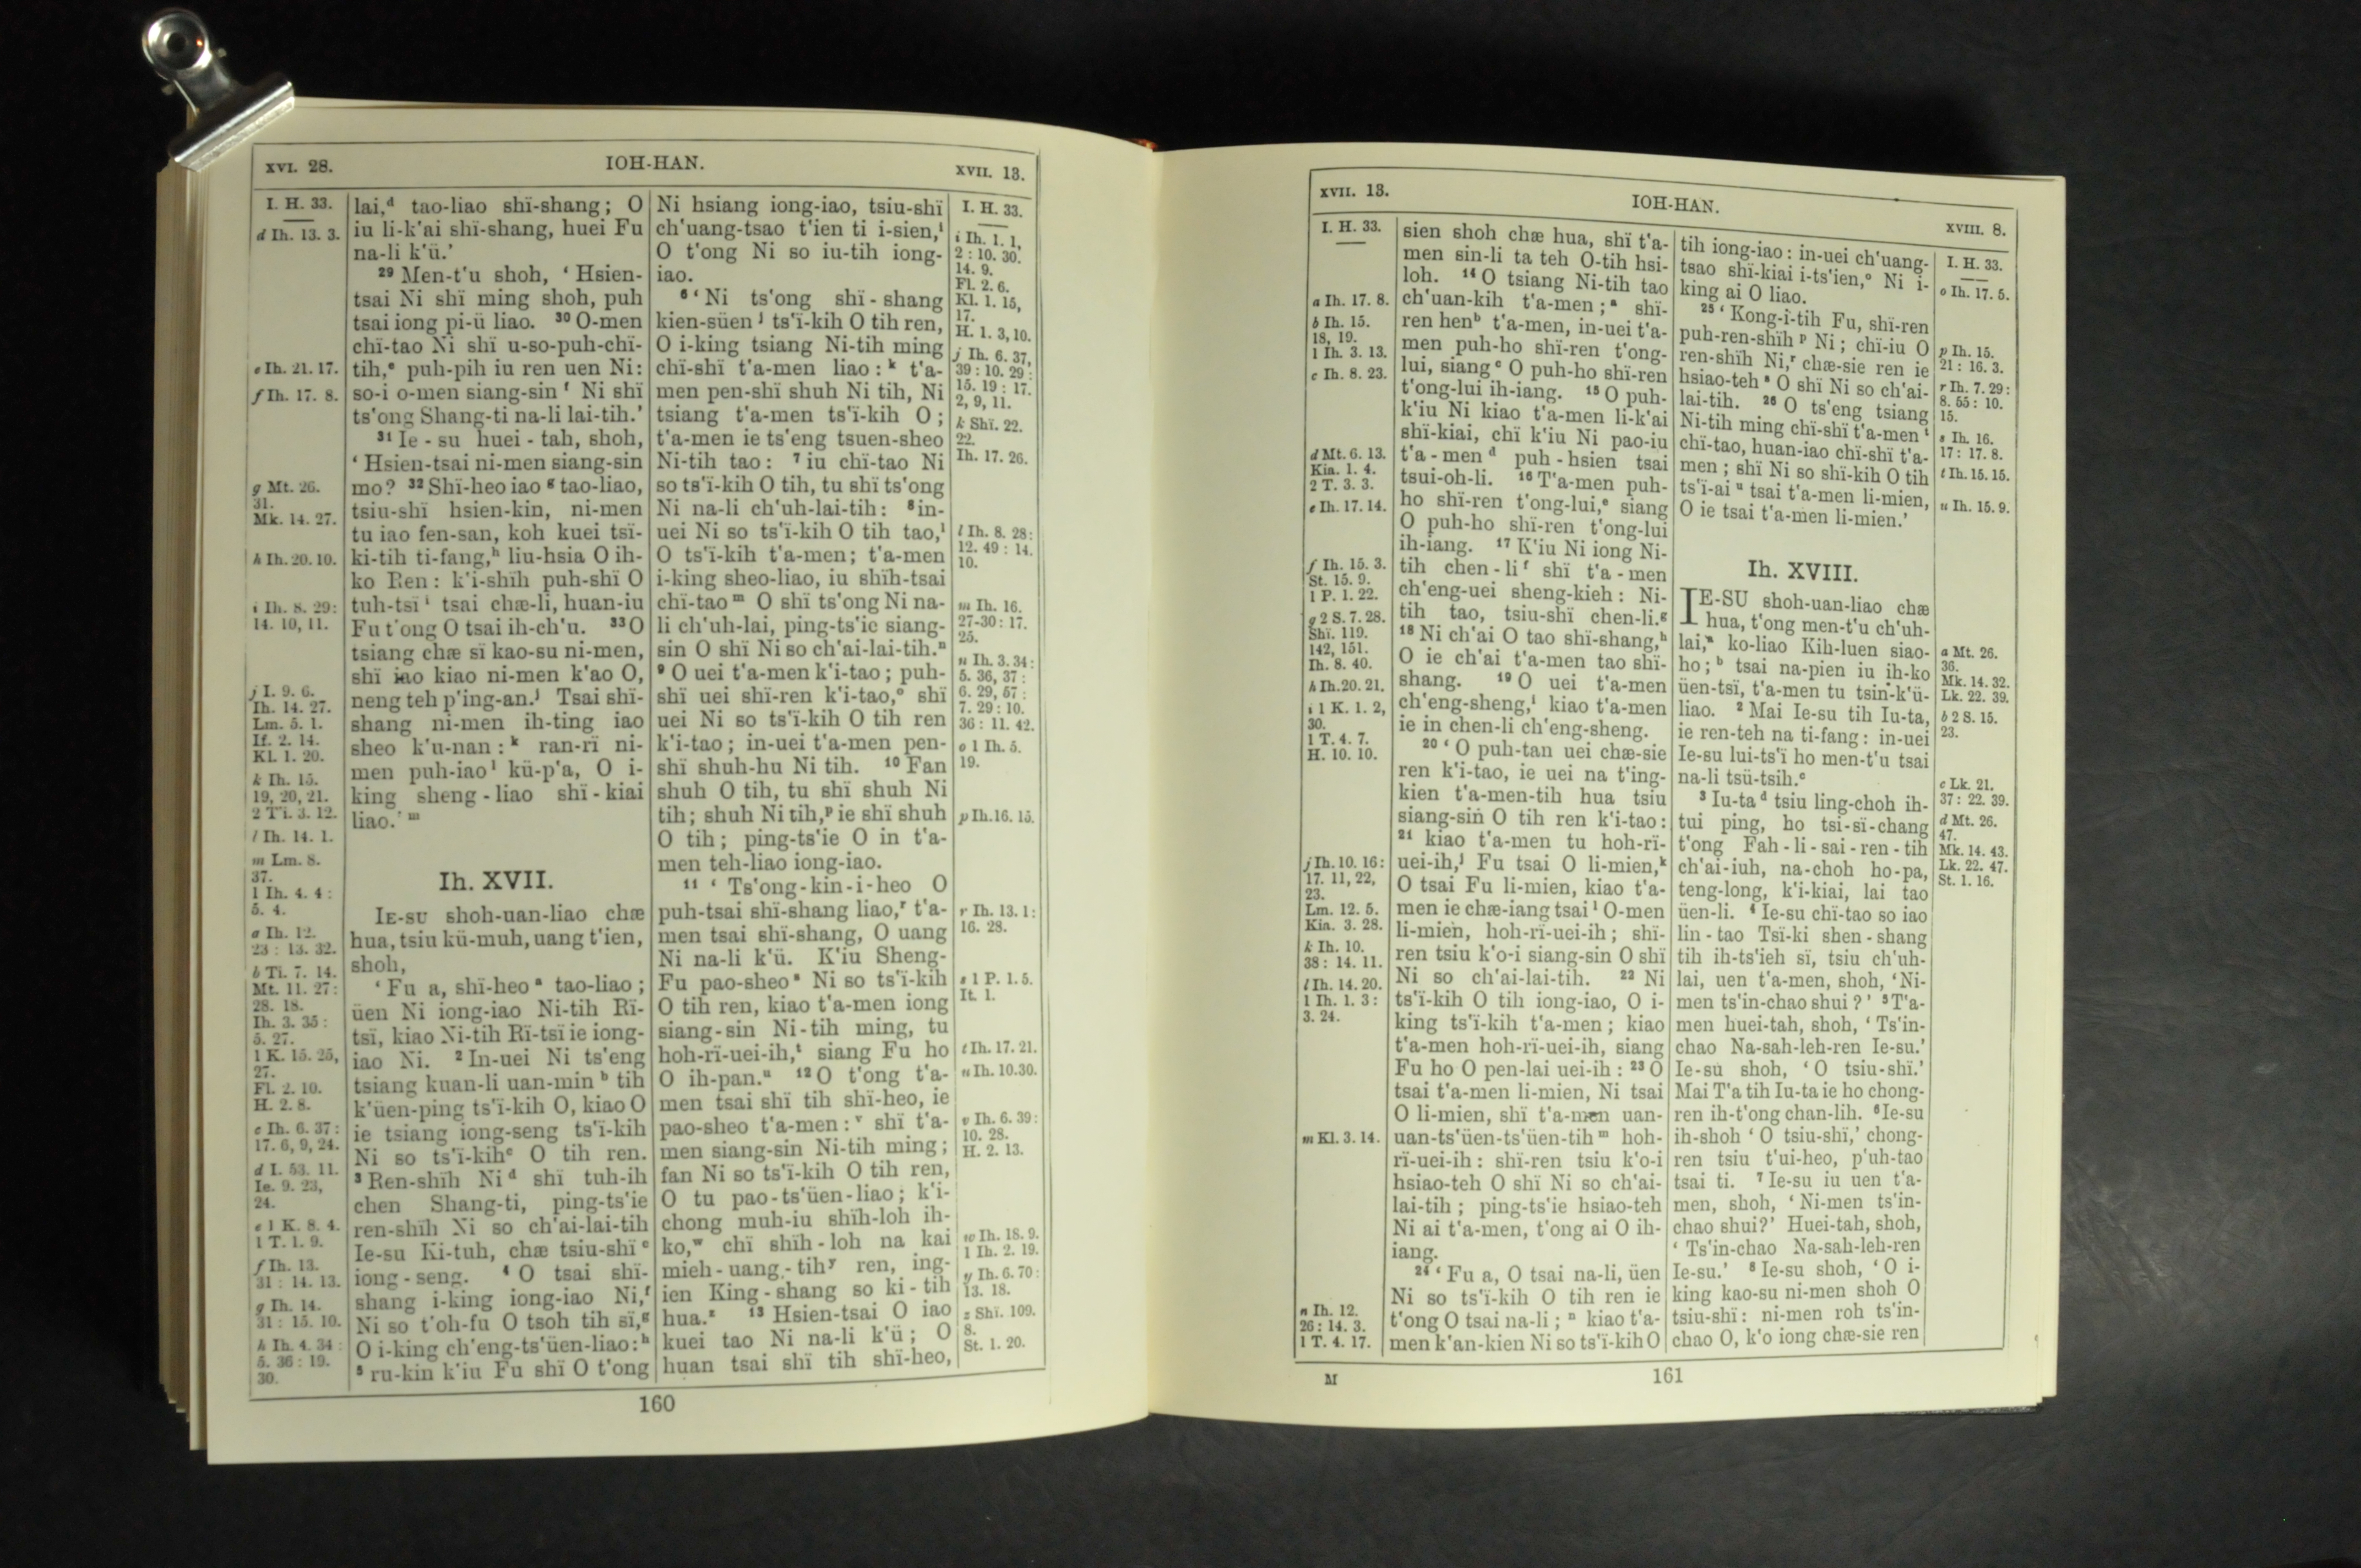 XVI. 28.
IOH-HAN.
XVII. 13.
I. H. 33.
d Ih. 13. 3.
e Ih. 21. 17.
f Ih. 17. 8.
g Mt. 26.
31.
Mk. 14. 27.
h Ih. 20. 10.
i Ih. 8. 29:
14. 10, 11.
j I. 9. 6.
Ih. 14. 27.
Lm. 5. 1.
If. 2. 14.
Kl. 1. 20.
k Ih. 15.
19, 20, 21.
2 Ti. 3. 12.
l Ih. 14. 1.
m Lm. 8.
37.
1 Ih. 4. 4:
5. 4.
a Ih. 12.
23: 13. 32.
b Ti. 7. 14.
Mt. 11. 27:
28. 18.
Ih. 3. 35:
5. 27.
1 K. 15. 25,
27.
Fl. 2. 10.
H. 2. 8.
c Ih. 6. 37:
17. 6, 9, 24.
d I. 53. 11.
Ie. 9. 23,
24.
e 1 K. 8. 4.
1 T. 1. 9.
f Ih. 13.
31: 14. 13.
g Ih. 14.
31: 15. 10.
h Ih. 4. 34:
5. 36: 19.
30.
lai,ᵈ tao-liao shï-shang; O
iu li-k'ai shï-shang, huei Fu
na-li k'ü.'
²⁹ Men-t'u shoh, 'Hsien-
tsai Ni shï ming shoh, puh
tsai iong pi-ü liao. ³⁰ O-men
chï-tao Ni shï u-so-puh-chï-
tih,ᵉ puh-pih iu ren uen Ni:
so-i o-men siang-sin ᶠ Ni shï
ts'ong Shang-ti na-li lai-tih.'
³¹ Ie-su huei-tah, shoh,
'Hsien-tsai ni-men siang-sin
mo? ³² Shï-heo iao ᵍ tao-liao,
tsiu-shï hsien-kin, ni-men
tu iao fen-san, koh kuei tsï-
ki-tih ti-fang,ʰ liu-hsia O ih-
ko Ren: k'i-shïh puh-shï O
tuh-tsï ⁱ tsai chæ-li, huan-iu
Fu t'ong O tsai ih-ch'u. ³³ O
tsiang chæ sï kao-su ni-men,
shï iao kiao ni-men k'ao O,
neng teh p'ing-an.ʲ Tsai shï-
shang ni-men ih-ting iao
sheo k'u-nan:ᵏ ran-rï ni-
men puh-iaoˡ kü-p'a, O i-
king sheng-liao shï-kiai
liao.' ᵐ
Ih. XVII.
IE-SU shoh-uan-liao chæ
hua, tsiu kü-muh, uang t'ien,
shoh,
'Fu a, shï-heoᵃ tao-liao;
üen Ni iong-iao Ni-tih Rï-
tsï, kiao Ni-tih Rï-tsï ie iong-
iao Ni. ² In-uei Ni ts'eng
tsiang kuan-li uan-min ᵇ tih
k'üen-ping ts'ï-kih O, kiao O
ie tsiang iong-seng ts'ï-kih
Ni so ts'ï-kihᶜ O tih ren.
³ Ren-shïh Niᵈ shï tuh-ih
chen Shang-ti, ping-ts'ie
ren-shïh Ni so ch'ai-lai-tih
Ie-su Ki-tuh, chæ tsiu-shïᵉ
iong-seng. ⁴ O tsai shï-
shang i-king iong-iao Ni,ᶠ
Ni so t'oh-fu O tsoh tih sï,ᵍ
O i-king ch'eng-ts'üen-liao:ʰ
⁵ ru-kin k'iu Fu shï O t'ong
Ni hsiang iong-iao, tsiu-shï
ch'uang-tsao t'ien ti i-sien,ⁱ
O t'ong Ni so iu-tih iong-
iao.
⁶ 'Ni ts'ong shï-shang
kien-süen ʲ ts'ï-kih O tih ren,
O i-king tsiang Ni-tih ming
chï-shï t'a-men liao: ᵏ t'a-
men pen-shï shuh Ni tih, Ni
tsiang t'a-men ts'ï-kih O;
t'a-men ie ts'eng tsuen-sheo
Ni-tih tao: ⁷ iu chï-tao Ni
so ts'ï-kih O tih, tu shï ts'ong
Ni na-li ch'uh-lai-tih: ⁸ in-
uei Ni so ts'ï-kih O tih tao,ˡ
O ts'ï-kih t'a-men; t'a-men
i-king sheo-liao, iu shïh-tsai
chï-tao ᵐ O shï ts'ong Ni na-
li ch'uh-lai, ping-ts'ie siang-
sin O shï Ni so ch'ai-lai-tih.ⁿ
⁹ O uei t'a-men k'i-tao; puh-
shï uei shï-ren k'i-tao,ᵒ shï
uei Ni so ts'ï-kih O tih ren
k'i-tao; in-uei t'a-men pen-
shï shuh-hu Ni tih. ¹⁰ Fan
shuh O tih, tu shï shuh Ni
tih; shuh Ni tih,ᵖ ie shï shuh
O tih; ping-ts'ie O in t'a-
men teh-liao iong-iao.
¹¹ 'Ts'ong-kin-i-heo O
puh-tsai shï-shang liao,ʳ t'a-
men tsai shï-shang, O uang
Ni na-li k'ü. K'iu Sheng-
Fu pao-sheoˢ Ni so ts'ï-kih
O tih ren, kiao t'a-men iong
siang-sin Ni-tih ming, tu
hoh-rï-uei-ih,ᵗ siang Fu ho
O ih-pan.ᵘ ¹² O t'ong t'a-
men tsai shï tih shï-heo, ie
pao-sheo t'a-men:ᵛ shï t'a-
men siang-sin Ni-tih ming;
fan Ni so ts'ï-kih O tih ren,
O tu pao-ts'üen-liao; k'i-
chong muh-iu shïh-loh ih-
ko,ʷ chï shïh-loh na kai
mieh-uang-tihʸ ren, ing-
ien King-shang so ki-tih
hua.ᶻ ¹³ Hsien-tsai O iao
kuei tao Ni na-li k'ü; O
huan tsai shï tih shï-heo,
I. H. 33.
i Ih. 1. 1,
2: 10. 30.
14. 9.
Fl. 2. 6.
Kl. 1. 15,
17.
H. 1. 3, 10.
j Ih. 6. 37,
39: 10. 29:
15. 19: 17.
2, 9, 11.
k Shï. 22.
22.
Ih. 17. 26.
l Ih. 8. 28:
12. 49: 14.
10.
m Ih. 16.
27-30: 17.
25.
n Ih. 3. 34:
5. 36, 37:
6. 29, 57:
7. 29: 10.
36: 11. 42.
o 1 Ih. 5.
19.
p Ih. 16. 15.
r Ih. 13. 1:
16. 28.
s 1 P. 1. 5.
It. 1.
t Ih. 17. 21.
u Ih. 10. 30.
v Ih. 6. 39:
10. 28.
H. 2. 13.
w Ih. 18. 9.
1 Ih. 2. 19.
y Ih. 6. 70:
13. 18.
z Shï. 109.
8.
St. 1. 20.
160
XVII. 13.
IOH-HAN.
XVIII. 8.
I. H. 33.
a Ih. 17. 8.
b Ih. 15.
18, 19.
1 Ih. 3. 13.
c Ih. 8. 23.
d Mt. 6. 13.
Kia. 1. 4.
2 T. 3. 3.
e Ih. 17. 14.
f Ih. 15. 3.
St. 15. 9.
1 P. 1. 22.
g 2 S. 7. 28.
Shï. 119.
142, 151.
Ih. 8. 40.
h Ih. 20. 21.
i 1 K. 1. 2,
30.
1 T. 4. 7.
H. 10. 10.
j Ih. 10. 16:
17. 11, 22,
23.
Lm. 12. 5.
Kia. 3. 28.
k Ih. 10.
38: 14. 11.
l Ih. 14. 20.
1 Ih. 1. 3:
3. 24.
m Kl. 3. 14.
n Ih. 12.
26: 14. 3.
1 T. 4. 17.
sien shoh chæ hua, shï t'a-
men sin-li ta teh O-tih hsi-
loh. ¹⁴ O tsiang Ni-tih tao
ch'uan-kih t'a-men;ᵃ shï-
ren henᵇ t'a-men, in-uei t'a-
men puh-ho shï-ren t'ong-
lui, siangᶜ O puh-ho shï-ren
t'ong-lui ih-iang. ¹⁵ O puh-
k'iu Ni kiao t'a-men li-k'ai
shï-kiai, chï k'iu Ni pao-iu
t'a-menᵈ puh-hsien tsai
tsui-oh-li. ¹⁶ T'a-men puh-
ho shï-ren t'ong-lui,ᵉ siang
O puh-ho shï-ren t'ong-lui
ih-iang. ¹⁷ K'iu Ni iong Ni-
tih chen-liᶠ shï t'a-men
ch'eng-uei sheng-kieh: Ni-
tih tao, tsiu-shï chen-li.ᵍ
¹⁸ Ni ch'ai O tao shï-shang,ʰ
O ie ch'ai t'a-men tao shï-
shang. ¹⁹ O uei t'a-men
ch'eng-sheng,ⁱ kiao t'a-men
ie in chen-li ch'eng-sheng.
²⁰ 'O puh-tan uei chæ-sie
ren k'i-tao, ie uei na t'ing-
kien t'a-men-tih hua tsiu
siang-sin O tih ren k'i-tao:
²¹ kiao t'a-men tu hoh-rï-
uei-ih,ʲ Fu tsai O li-mien,ᵏ
O tsai Fu li-mien, kiao t'a-
men ie chæ-iang tsaiˡ O-men
li-mien, hoh-rï-uei-ih; shï-
ren tsiu k'o-i siang-sin O shï
Ni so ch'ai-lai-tih. ²² Ni
ts'ï-kih O tih iong-iao, O i-
king ts'ï-kih t'a-men; kiao
t'a-men hoh-rï-uei-ih, siang
Fu ho O pen-lai uei-ih: ²³ O
tsai t'a-men li-mien, Ni tsai
O li-mien, shï t'a-men uan-
uan-ts'üen-ts'üen-tihᵐ hoh-
rï-uei-ih: shï-ren tsiu k'o-i
hsiao-teh O shï Ni so ch'ai-
lai-tih; ping-ts'ie hsiao-teh
Ni ai t'a-men, t'ong ai O ih-
iang.
²⁴ 'Fu a, O tsai na-li, üen
Ni so ts'ï-kih O tih ren ie
t'ong O tsai na-li;ⁿ kiao t'a-
men k'an-kien Ni so ts'ï-kih O
tih iong-iao: in-uei ch'uang-
tsao shï-kiai i-ts'ien,ᵒ Ni i-
king ai O liao.
²⁵ 'Kong-i-tih Fu, shï-ren
puh-ren-shïh ᵖ Ni; chï-iu O
ren-shïh Ni,ʳ chæ-sie ren ie
hsiao-tehˢ O shï Ni so ch'ai-
lai-tih. ²⁶ O ts'eng tsiang
Ni-tih ming chï-shï t'a-menᵗ
chï-tao, huan-iao chï-shï t'a-
men; shï Ni so shï-kih O tih
ts'ï-aiᵘ tsai t'a-men li-mien,
O ie tsai t'a-men li-mien.'
Ih. XVIII.
IE-SU shoh-uan-liao chæ
hua, t'ong men-t'u ch'uh-
lai,ᵃ ko-liao Kih-luen siao-
ho;ᵇ tsai na-pien iu ih-ko
üen-tsï, t'a-men tu tsin-k'ü-
liao. ² Mai Ie-su tih Iu-ta,
ie ren-teh na ti-fang: in-uei
Ie-su lui-ts'ï ho men-t'u tsai
na-li tsü-tsih.ᶜ
³ Iu-taᵈ tsiu ling-choh ih-
tui ping, ho tsi-sï-chang
t'ong Fah-li-sai-ren-tih
ch'ai-iuh, na-choh ho-pa,
teng-long, k'i-kiai, lai tao
üen-li. ⁴ Ie-su chï-tao so iao
lin-tao Tsï-ki shen-shang
tih ih-ts'ieh sï, tsiu ch'uh-
lai, uen t'a-men, shoh, 'Ni-
men ts'in-chao shui?' ⁵ T'a-
men huei-tah, shoh, 'Ts'in-
chao Na-sah-leh-ren Ie-su.'
Ie-su shoh, 'O tsiu-shï.'
Mai T'a tih Iu-ta ie ho chong-
ren ih-t'ong chan-lih. ⁶ Ie-su
ih-shoh 'O tsiu-shï,' chong-
ren tsiu t'ui-heo, p'uh-tao
tsai ti. ⁷ Ie-su iu uen t'a-
men, shoh, 'Ni-men ts'in-
chao shui?' Huei-tah, shoh,
'Ts'in-chao Na-sah-leh-ren
Ie-su.' ⁸ Ie-su shoh, 'O i-
king kao-su ni-men shoh O
tsiu-shï: ni-men roh ts'in-
chao O, k'o iong chæ-sie ren
I. H. 33.
o Ih. 17. 5.
p Ih. 15.
21: 16. 3.
r Ih. 7. 29:
8. 55: 10.
15.
s Ih. 16.
17: 17. 8.
t Ih. 15. 15.
u Ih. 15. 9.
a Mt. 26.
36.
Mk. 14. 32.
Lk. 22. 39.
b 2 S. 15.
23.
c Lk. 21.
37: 22. 39.
d Mt. 26.
47.
Mk. 14. 43.
Lk. 22. 47.
St. 1. 16.
M
161